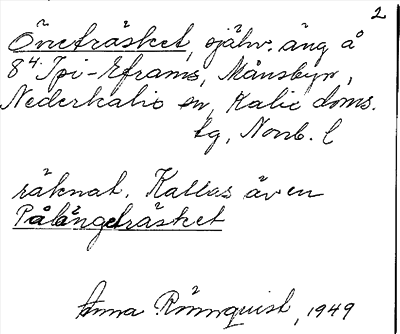 2
Öneträsket, självr. äng å
8⁴ Ipi-Eframs, Månsbyn,
Nederkalix sn, Kalix doms.
tg, Norrb. l
räknat. Kallas även
Pålängeträsket
Anna Rönnquist, 1949